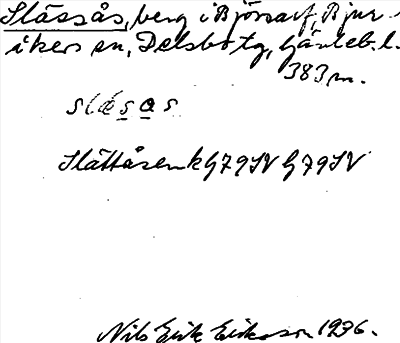 Slåssås, berg i Björsarf, Bjur-
åkers sn, Delsbo tg, Gävleb. l.
383 m.
slǽsas
Slåttåsen k G79SV G79SV
Nils Erik Eriksson 1936.